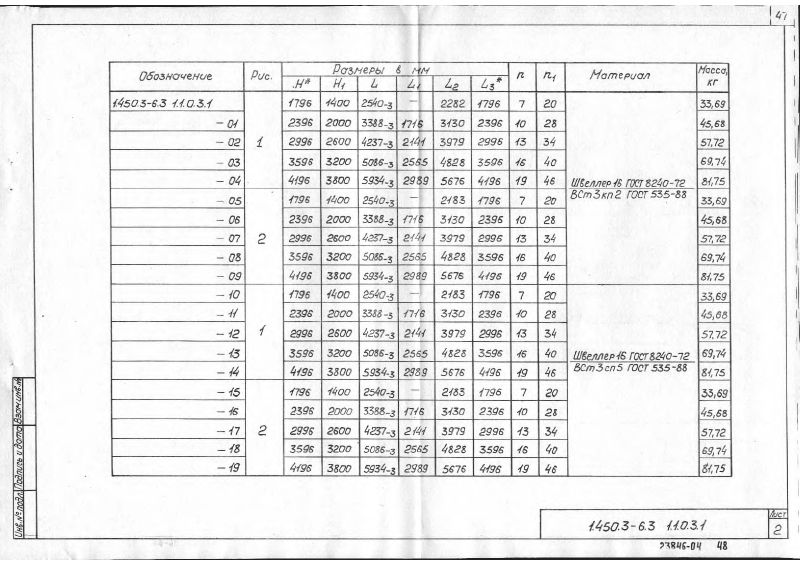 47
Обозначение Рис. Размеры в мм n n1 Материал Масса, кг
H* H1 L L1 L2 L3*
1.450.3-6.3 1.1.0.3.1 1 1796 1400 2540-3 — 2282 1796 7 20 Швеллер 16 ГОСТ 8240-72 33,69
- 01 2396 2000 3388-3 1716 3130 2396 10 28 ВСт3кп2 ГОСТ 535-88 45,68
- 02 2996 2600 4237-3 2141 3979 2996 13 34 57,72
- 03 3596 3200 5086-3 2565 4828 3596 16 40 69,74
- 04 4196 3800 5934-3 2989 5676 4196 19 46 81,75
- 05 2 1796 1400 2540-3 — 2183 1796 7 20 33,69
- 06 2396 2000 3388-3 1716 3130 2396 10 28 45,68
- 07 2996 2600 4237-3 2141 3979 2996 13 34 57,72
- 08 3596 3200 5086-3 2565 4828 3596 16 40 69,74
- 09 4196 3800 5934-3 2989 5676 4196 19 46 81,75
- 10 1 1796 1400 2540-3 — 2183 1796 7 20 Швеллер 16 ГОСТ 8240-72 33,69
- 11 2396 2000 3388-3 1716 3130 2396 10 28 ВСт3сп5 ГОСТ 535-88 45,68
- 12 2996 2600 4237-3 2141 3979 2996 13 34 57,72
- 13 3596 3200 5086-3 2565 4828 3596 16 40 69,74
- 14 4196 3800 5934-3 2989 5676 4196 19 46 81,75
- 15 2 1796 1400 2540-3 — 2183 1796 7 20 33,69
- 16 2396 2000 3388-3 1716 3130 2396 10 28 45,68
- 17 2996 2600 4237-3 2141 3979 2996 13 34 57,72
- 18 3596 3200 5086-3 2565 4828 3596 16 40 69,74
- 19 4196 3800 5934-3 2989 5676 4196 19 46 81,75
Инв. № подл. Подпись и дата Взам. инв. №
1.450.3-6.3 1.1.0.3.1
Лист
2
23846-04 48